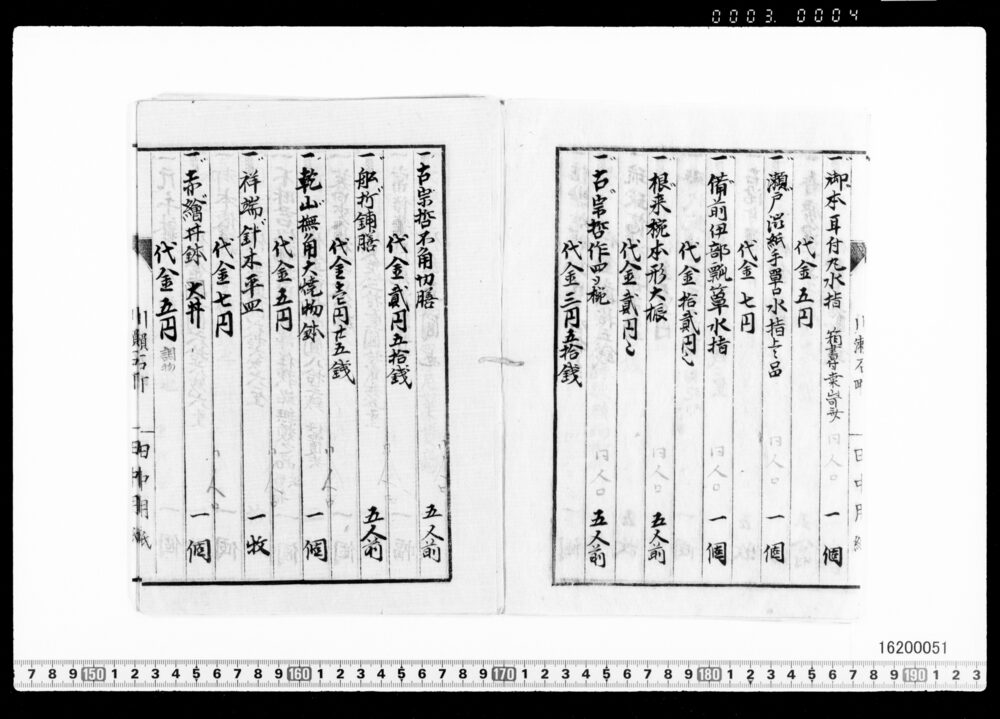 0003. 0004
一 御本耳付丸水指 箱書付 一個
代金五円
一 瀬戸渋紙手單口水指上々品 一個
代金七円
一 備前伊部瓢箪水指 一個
代金拾貳円也
一 根来椀本形大振 五人前
代金貳円也
一 古宗哲作四ツ椀 五人前
代金三円五拾銭
一 古宗哲不角切膳 五人前
代金貳円五拾銭
一 船折鋪膳 五人前
代金壱円廿五銭
一 乾山撫角大焼物鉢 一個
代金五円
一 祥端針木平皿 一枚
代金七円
一 赤繪丼鉢 大丼 一個
代金五円
川瀬石町
田中用紙
16200051
7 8 9 150 1 2 3 4 5 6 7 8 9 160 1 2 3 4 5 6 7 8 9 170 1 2 3 4 5 6 7 8 9 180 1 2 3 4 5 6 7 8 9 190 1 2 3